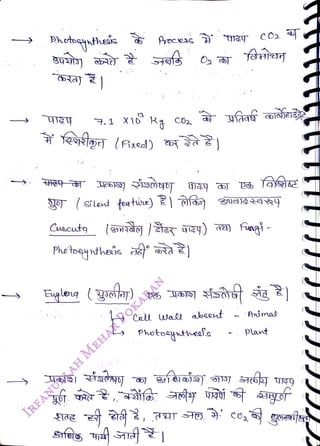 → Photosynthesis के Process में पादप CO2 का
उपयोग करते हैं जबकि O2 का विमोचन
करता है |
→ पादप 7.1 X10 Kg CO2 को प्रतिवर्ष कार्बोहाइड्रेट
में स्थिरीकृत (Fixed) कर देते है |
→ प्रकाश संश्लेषण पादप का एक विशिष्ट
गुण (Silent feature) है | लेकिन अपवाद स्वरूप
Cuscuta (अमरबेल / डोडर पादप) तथा Fungi -
Photosynthesis नहीं करते है |
→ Euglena (युग्लीना) एक प्रकाश संश्लेषी जंतु है |
→ Cell Wall absent - Animal
→ Photosynthesis - Plant
→ प्रकाश संश्लेषण का अधिकांश भाग जलीय पादप
पूर्ण करते है, क्योंकि जलीय पादपों की सम्पूर्ण
सतह हरी होती है, तथा जल में CO2 की घुलनशीलता
अधिक पायी जाती है |
IRFANULLAH MEHAR POKARAN